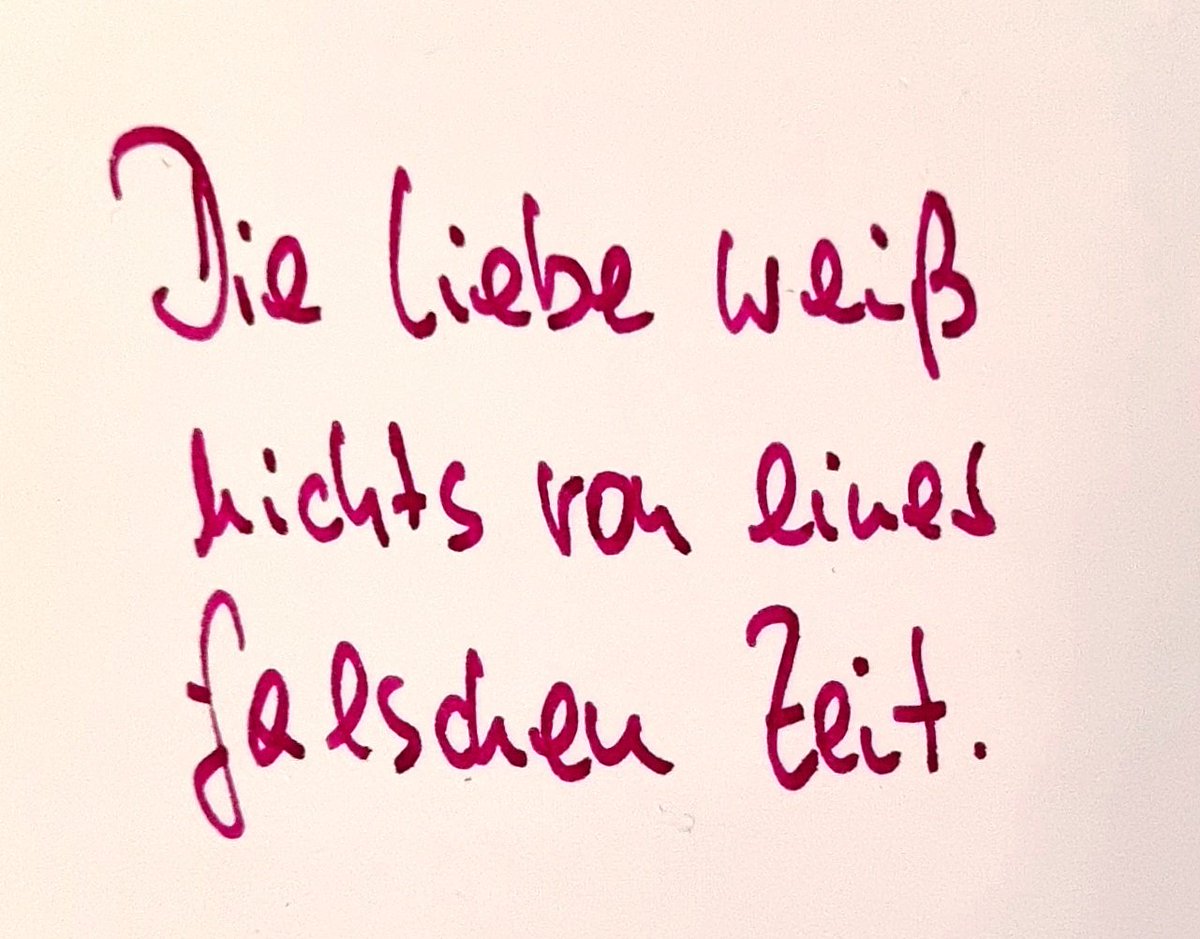 Die Liebe weiß
nichts von einer
falschen Zeit.